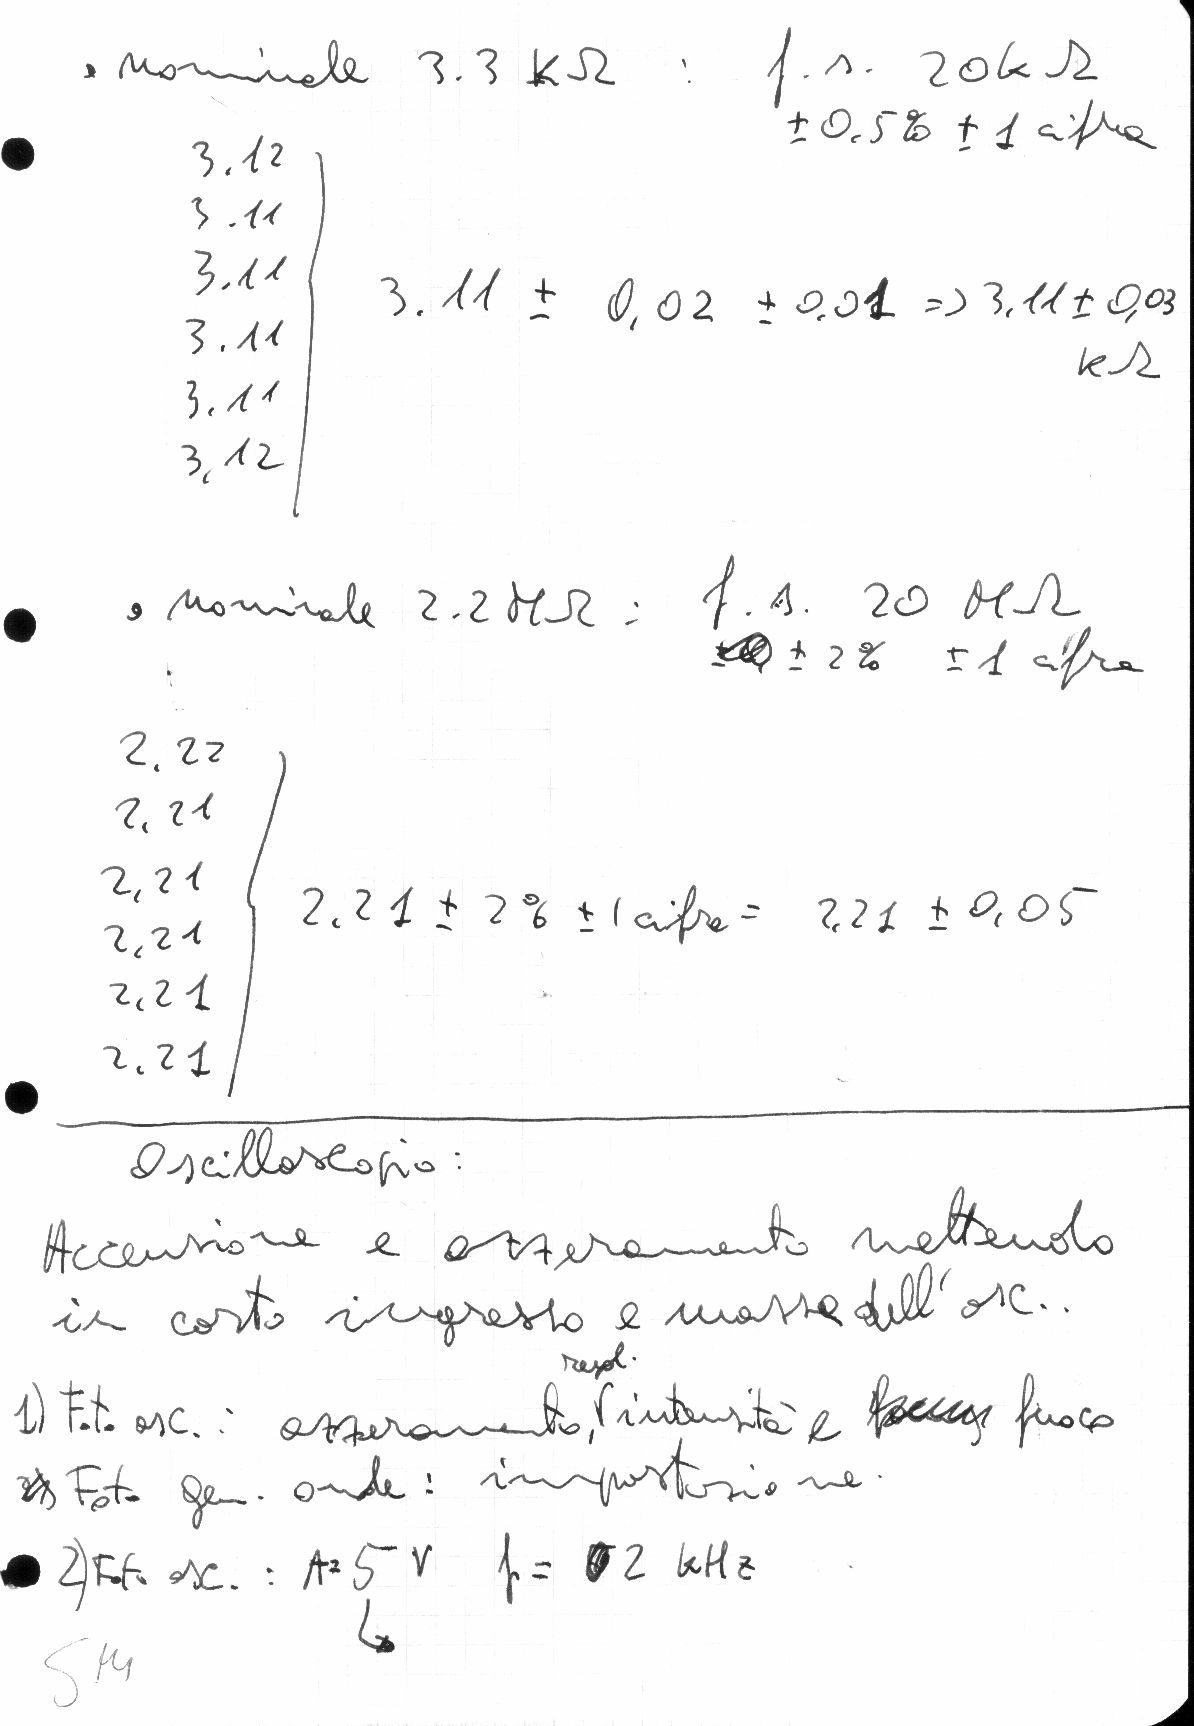 • nominale 3.3 kΩ : f.s. 20kΩ
± 0.5% ± 1 cifra
3.12
3.11
3.11
3.11
3.11
3,12
3.11 ± 0,02 ± 0.01 => 3.11 ± 0,03
kΩ
• nominale 2.2 MΩ : f.s. 20 MΩ
± 2% ± 1 cifra
2.22
2,21
2,21
2,21
2,21
2.21
2.21 ± 2% ± 1 cifra = 2.21 ± 0,05
Oscilloscopio :
Accensione e azzeramento mettendo
in corto ingresso e massa dell'osc..
regol.
1) Foto osc. : azzeramento, intensità e fuoco
Foto gen. onde : impostazione.
2) Foto osc. : A= 5 V f = 2 kHz